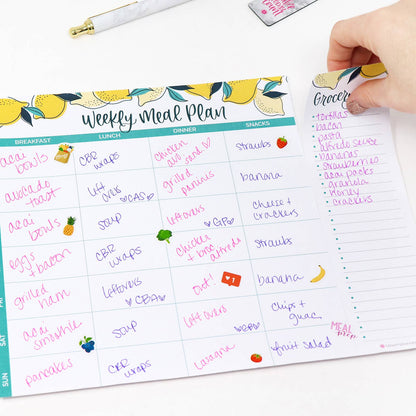 Weekly Meal Plan
BREAKFAST LUNCH DINNER SNACKS
acai bowls
CBR wraps
chicken and salad
straubs
avocado toast
left overs
♡CAS♡
grilled paninis
banana
acai bowls
soup
leftovers
♡GP♡
cheese + crackers
eggs + bacon
CBR wraps
chicken + broc alfredo
straubs
FRI
grilled ham
leftovers
♡CBA♡
out!
1
banana
SAT
acai smoothie
soup
left overs
chips + guac
SUN
pancakes
CBR wraps
lasagna
fruit salad
Grocery
tortillas
bacon
pasta
alfredo sauce
bananas
strawberries
acai packs
granola
honey
crackers
MEAL